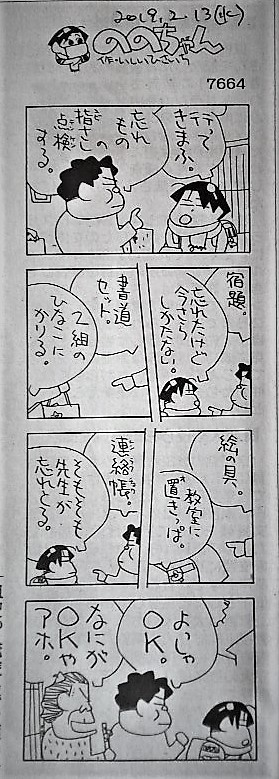 2019.2.13(水)
ののちゃん
作・いしいひさいち
7664
行って
きまふ。
忘れ
もの
の
指さし
点検
する。
宿題。
忘れたけど
今さら
しかたない。
書道
セット。
2組の
ひなこに
かりる。
絵の具。
教室に
置きっぱ。
連絡帳。
そもそも
先生が
忘れとる。
よいしゃ
OK。
なにが
OKや
アホ。